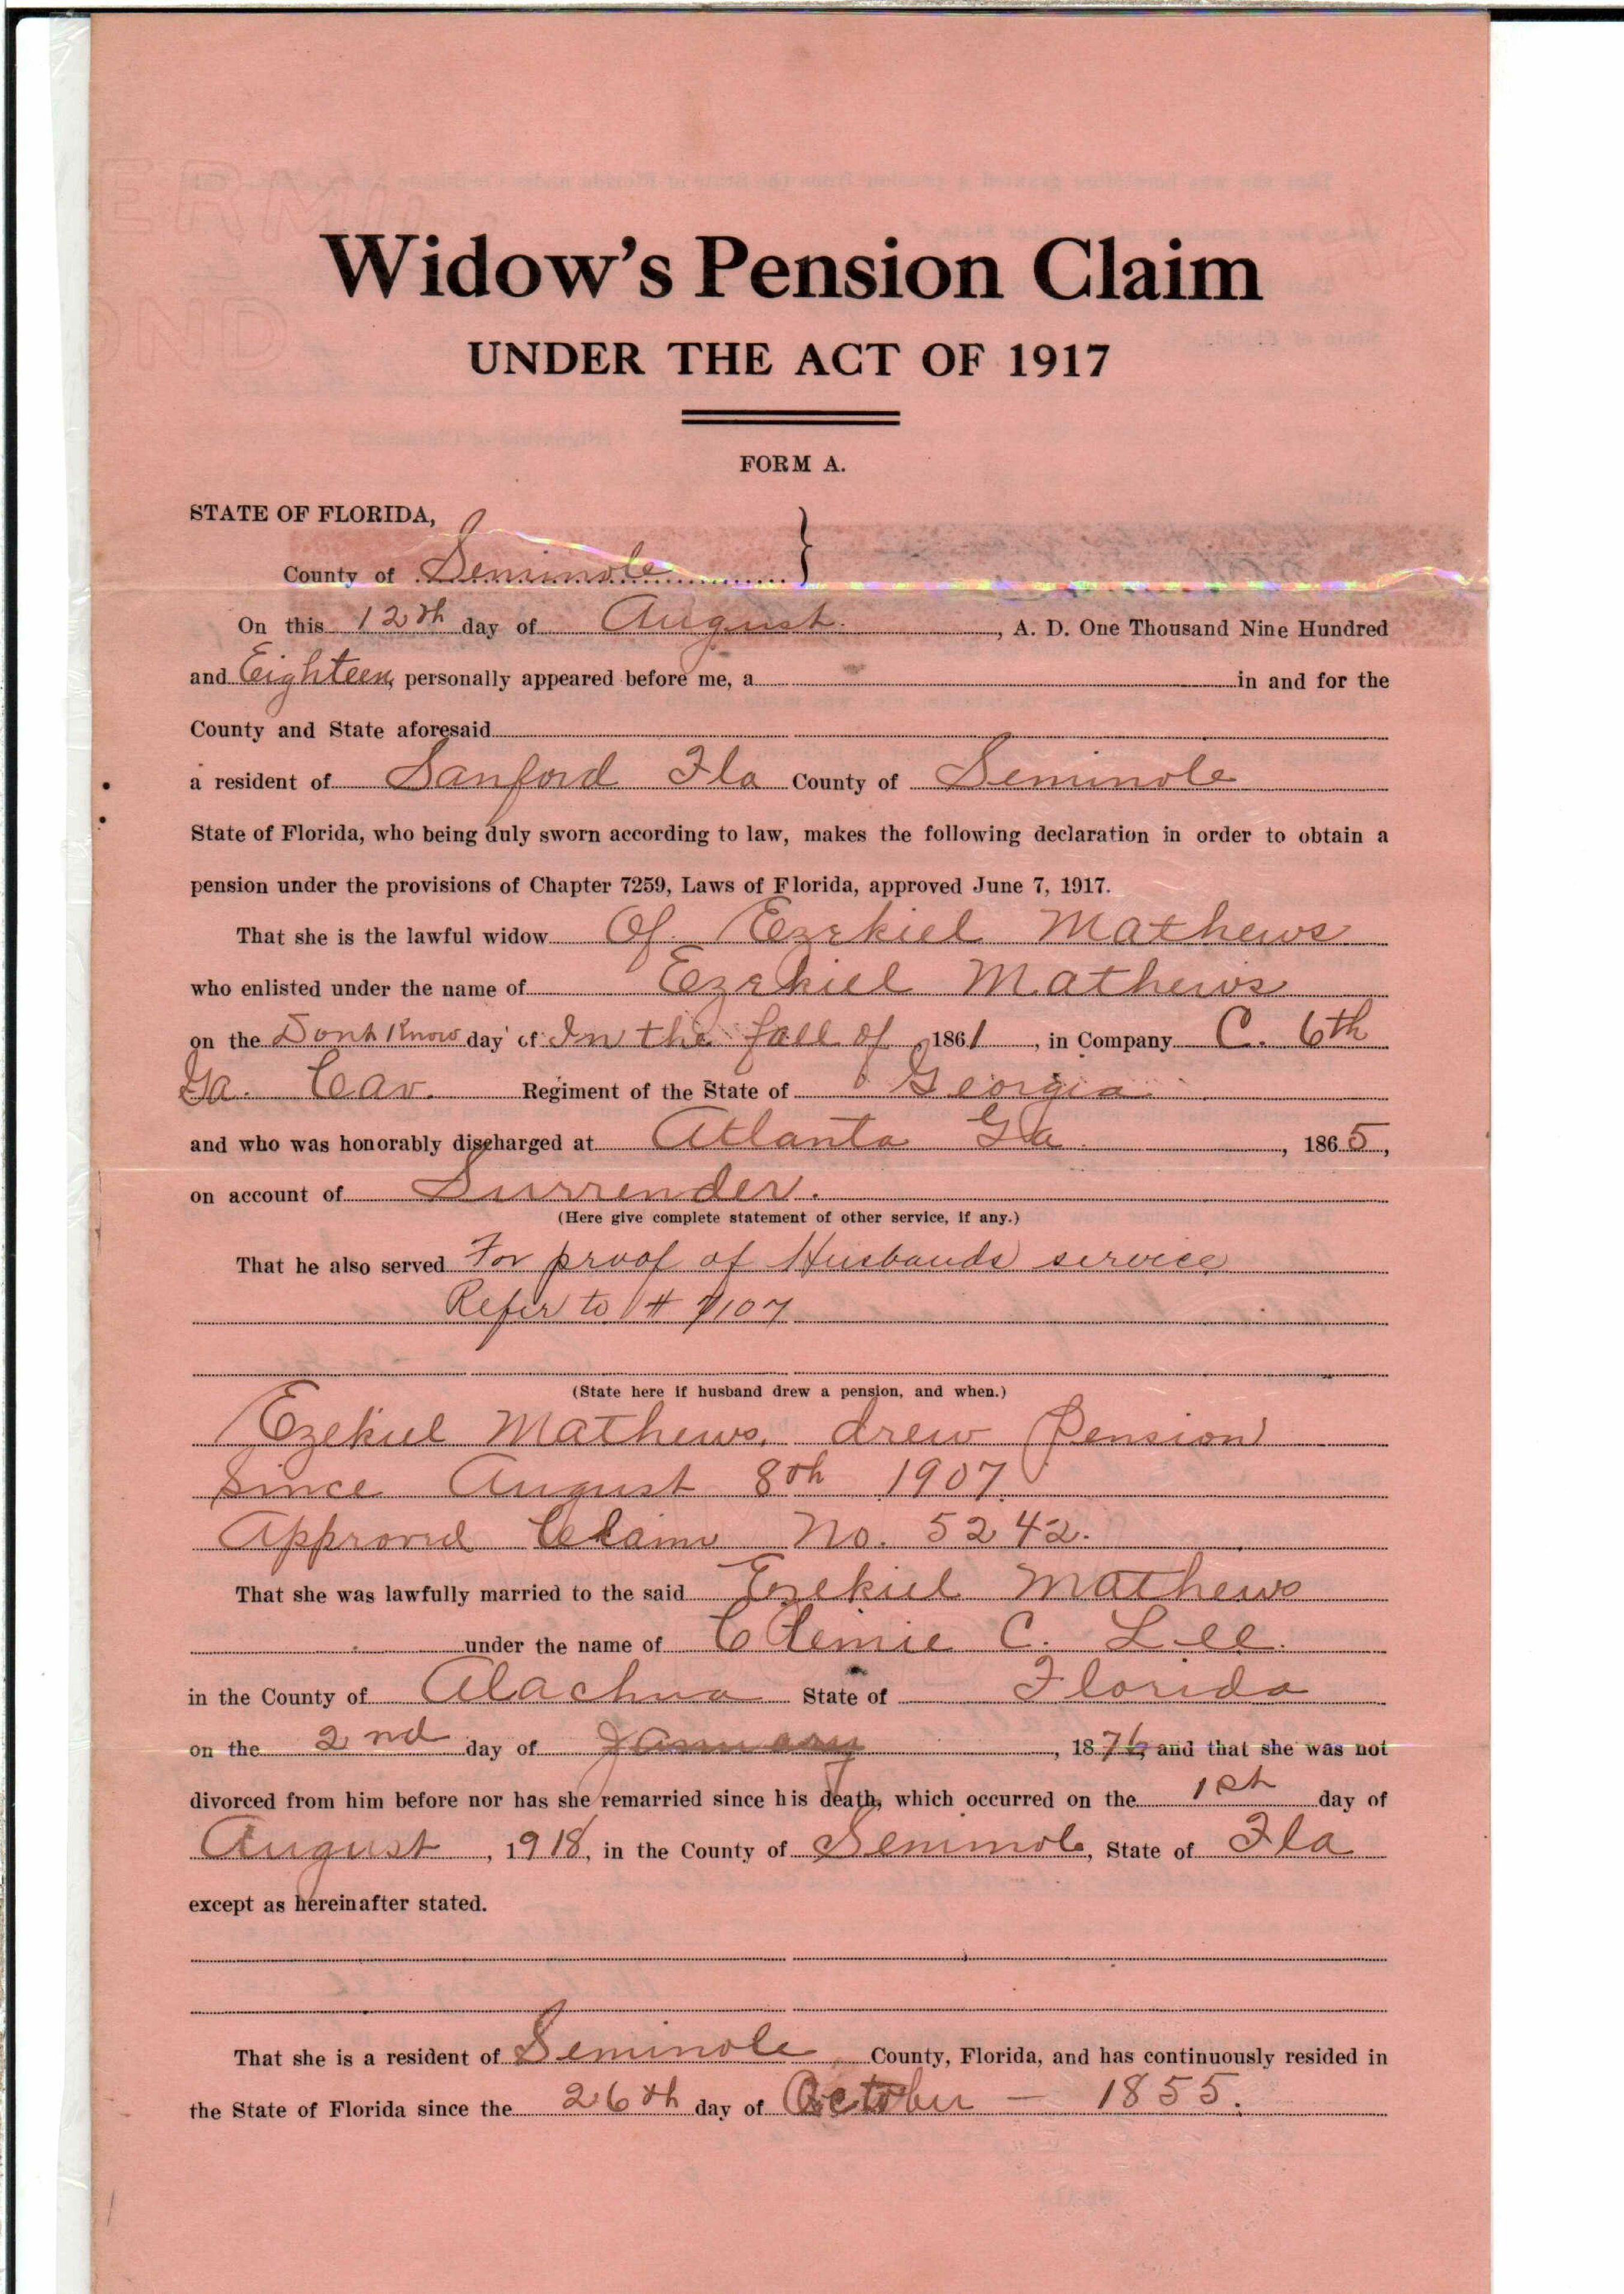 Widow's Pension Claim
UNDER THE ACT OF 1917
FORM A.
STATE OF FLORIDA,
County of Seminole
On this 12th day of August, A. D. One Thousand Nine Hundred
and Eighteen, personally appeared before me, a in and for the
County and State aforesaid
a resident of Sanford Fla County of Seminole
State of Florida, who being duly sworn according to law, makes the following declaration in order to obtain a
pension under the provisions of Chapter 7259, Laws of Florida, approved June 7, 1917.
That she is the lawful widow Of Ezekiel Mathews
who enlisted under the name of Ezekiel Mathews
on the Dont Know day of In the fall of, 1861, in Company C. 6th
Ga. Cav. Regiment of the State of Georgia
and who was honorably discharged at Atlanta Ga, 1865,
on account of Surrender.
(Here give complete statement of other service, if any.)
That he also served For proof of Husbands service
Refer to #
(State here if husband drew a pension, and when.)
Ezekiel Mathews. drew Pension
Since August 8th 1907
Approved Claim No. 5242.
That she was lawfully married to the said Ezekiel Mathews
under the name of Clemie C. Lee.
in the County of Alachua State of Florida
on the 2nd day of January, 1876, and that she was not
divorced from him before nor has she remarried since his death, which occurred on the 1st day of
August, 1918, in the County of Seminole, State of Fla
except as hereinafter stated.
That she is a resident of Seminole County, Florida, and has continuously resided in
the State of Florida since the 26th day of October - 1855.